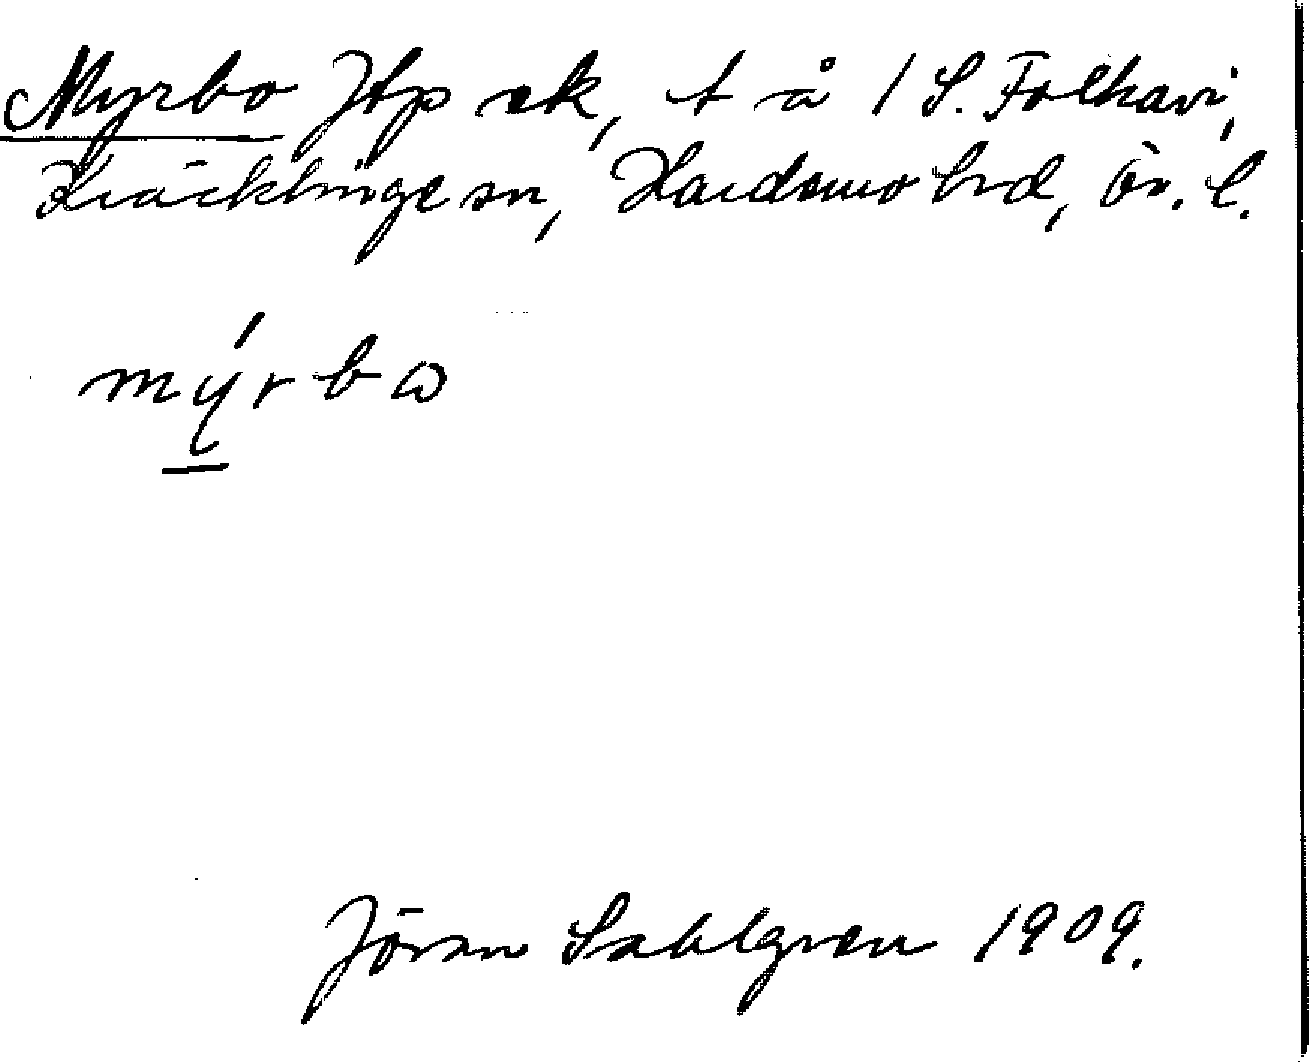 Myrbo Jtp sk, t å 1 S. Folkavi,
Kräcklinge sn, Hardemo hd, Ör. l.
mýrbω
Jöran Sahlgren 1909.